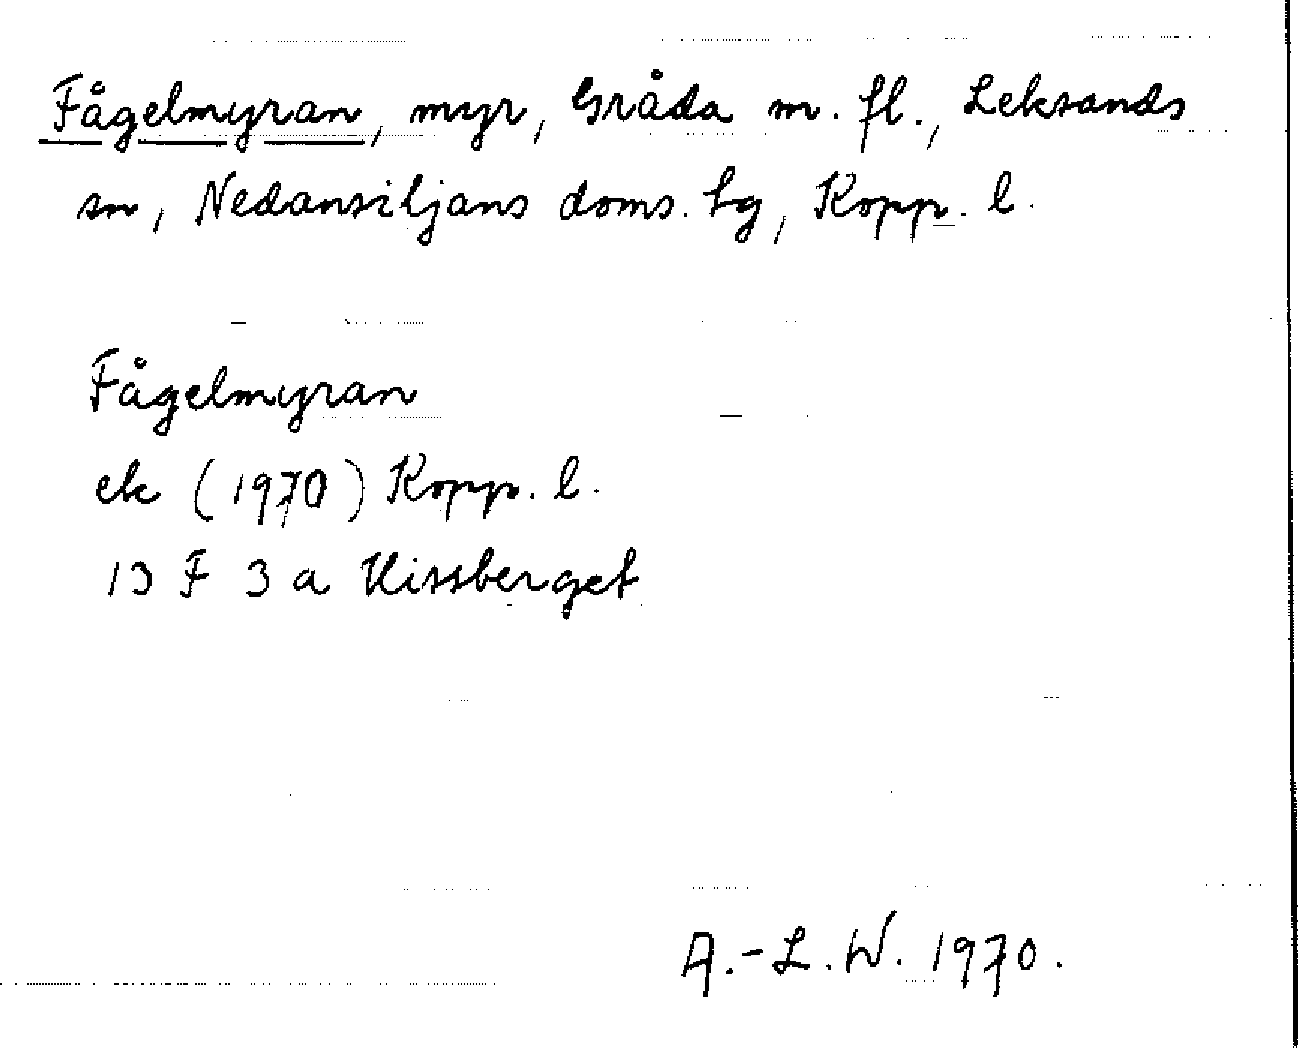 Fågelmyran, myr, Gråda m. fl., Leksands
sn, Nedansiljans doms. tg, Kopp. l.
Fågelmyran
ek (1970) Kopp. l.
13 F 3 a Kissberget
A.-L.W. 1970.